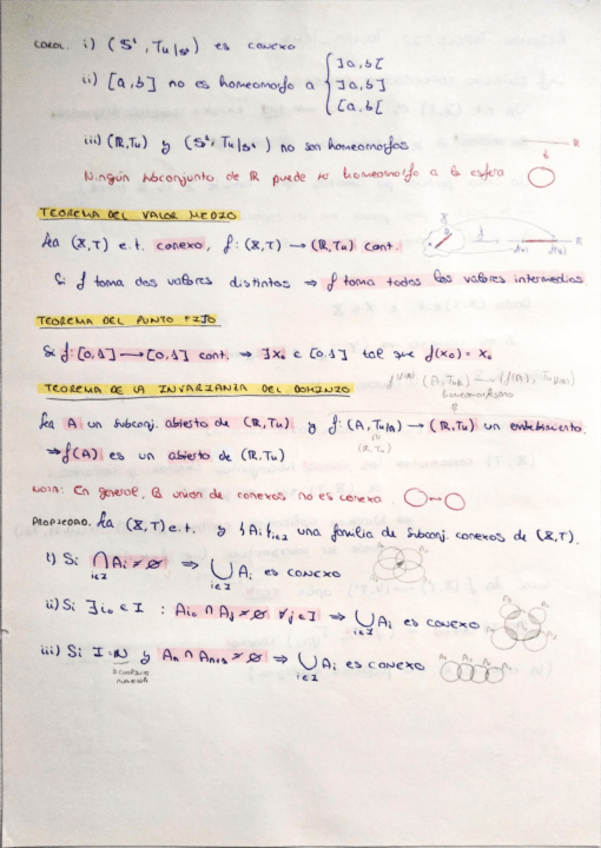 COROL. i) (S¹, Tu|S¹) es conexo
ii) [a,b] no es homeomorfo a { ]a,b[
]a,b]
[a,b[
iii) (R,Tu) y (S¹, Tu|S¹) no son homeomorfos
R
Ningún subconjunto de R puede ser homeomorfo a la esfera
TEOREMA DEL VALOR MEDIO
Sea (X,T) e.t. conexo, f: (X,T) → (R,Tu) cont.
X f f(x) f(y) R
Si f toma dos valores distintos ⇒ f toma todos los valores intermedios.
TEOREMA DEL PUNTO FIJO
Si f: [0,1] → [0,1] cont. ⇒ ∃x₀ ∈ [0,1] tal que f(x₀) = x₀
TEOREMA DE LA INVARIANZA DEL DOMINIO
(A, Tu|A) → (f(A), Tu|f(A))
homeomorfismo
Sea A un subconj. abierto de (R,Tu) y f: (A, Tu|A) → (R,Tu) un embebimiento.
(R, Tu)
⇒ f(A) es un abierto de (R,Tu)
NOTA: En general, la union de conexos no es conexa
PROPIEDAD. Sea (X,T) e.t. y {Ai}i∈I una familia de subconj. conexos de (X,T).
i) Si ⋂i∈I Ai ≠ ∅ ⇒ ⋃i∈I Ai es conexo
ii) Si ∃i₀ ∈ I : Ai₀ ∩ Aj ≠ ∅ ∀j∈I ⇒ ⋃i∈I Ai es conexo
iii) Si I = N y An ∩ An+1 ≠ ∅ ⇒ ⋃i∈I Ai es conexo